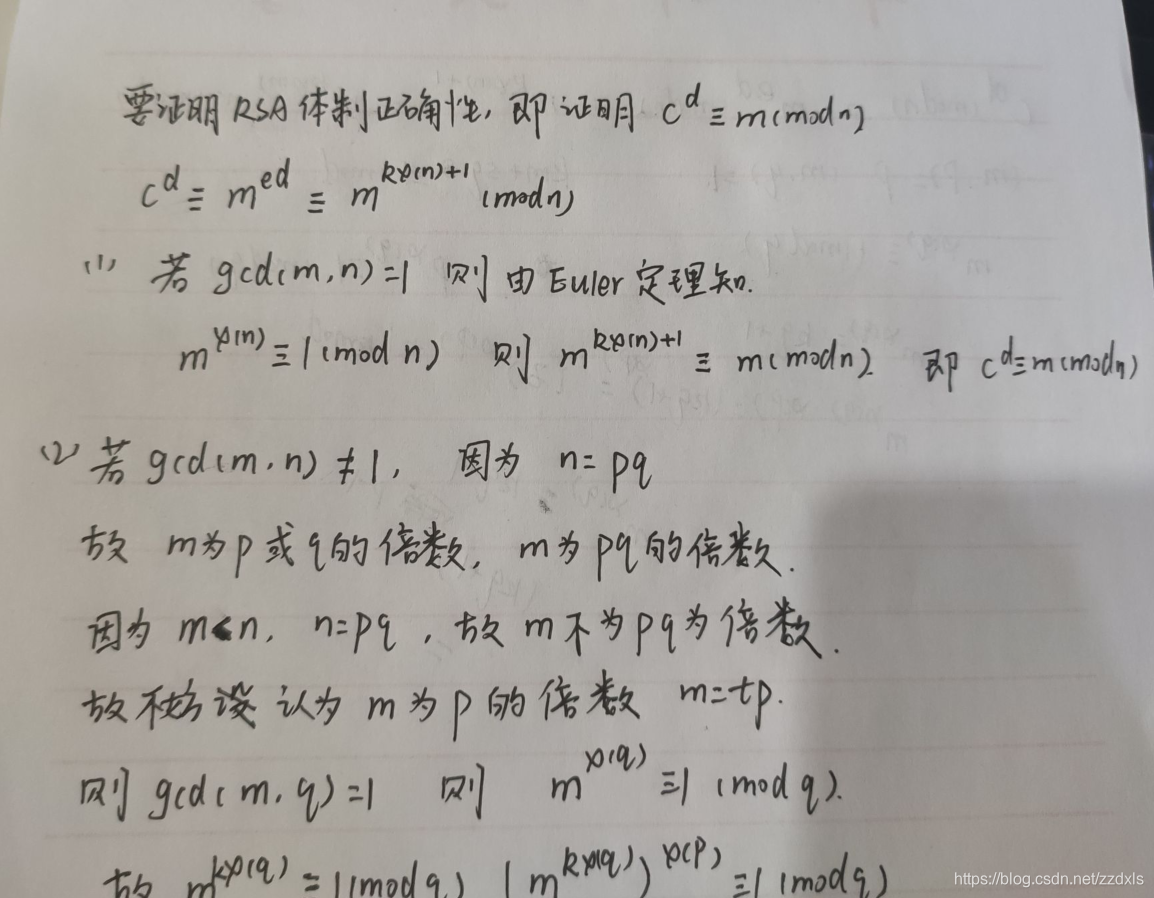 要证明RSA体制正确性, 即证明 c^d ≡ m(mod n)
c^d ≡ m^{ed} ≡ m^{kφ(n)+1} (mod n)
(1) 若 gcd(m,n)=1 则 由Euler定理知.
m^{φ(n)} ≡ 1(mod n) 则 m^{kφ(n)+1} ≡ m(mod n). 即 c^d≡m(mod n)
(2) 若 gcd(m,n) ≠ 1, 因为 n= pq
故 m为p或q的倍数, m为pq的倍数.
因为 m<n, n=pq, 故 m不为pq为倍数.
故不妨设认为 m为p的倍数 m=tp.
则 gcd(m,q)=1 则 m^{φ(q)} ≡1 (mod q).
故 m^{kφ(q)} ≡1(mod q) (m^{kφ(q)})^{φ(p)} ≡1 (mod q)
https://blog.csdn.net/zzdxls